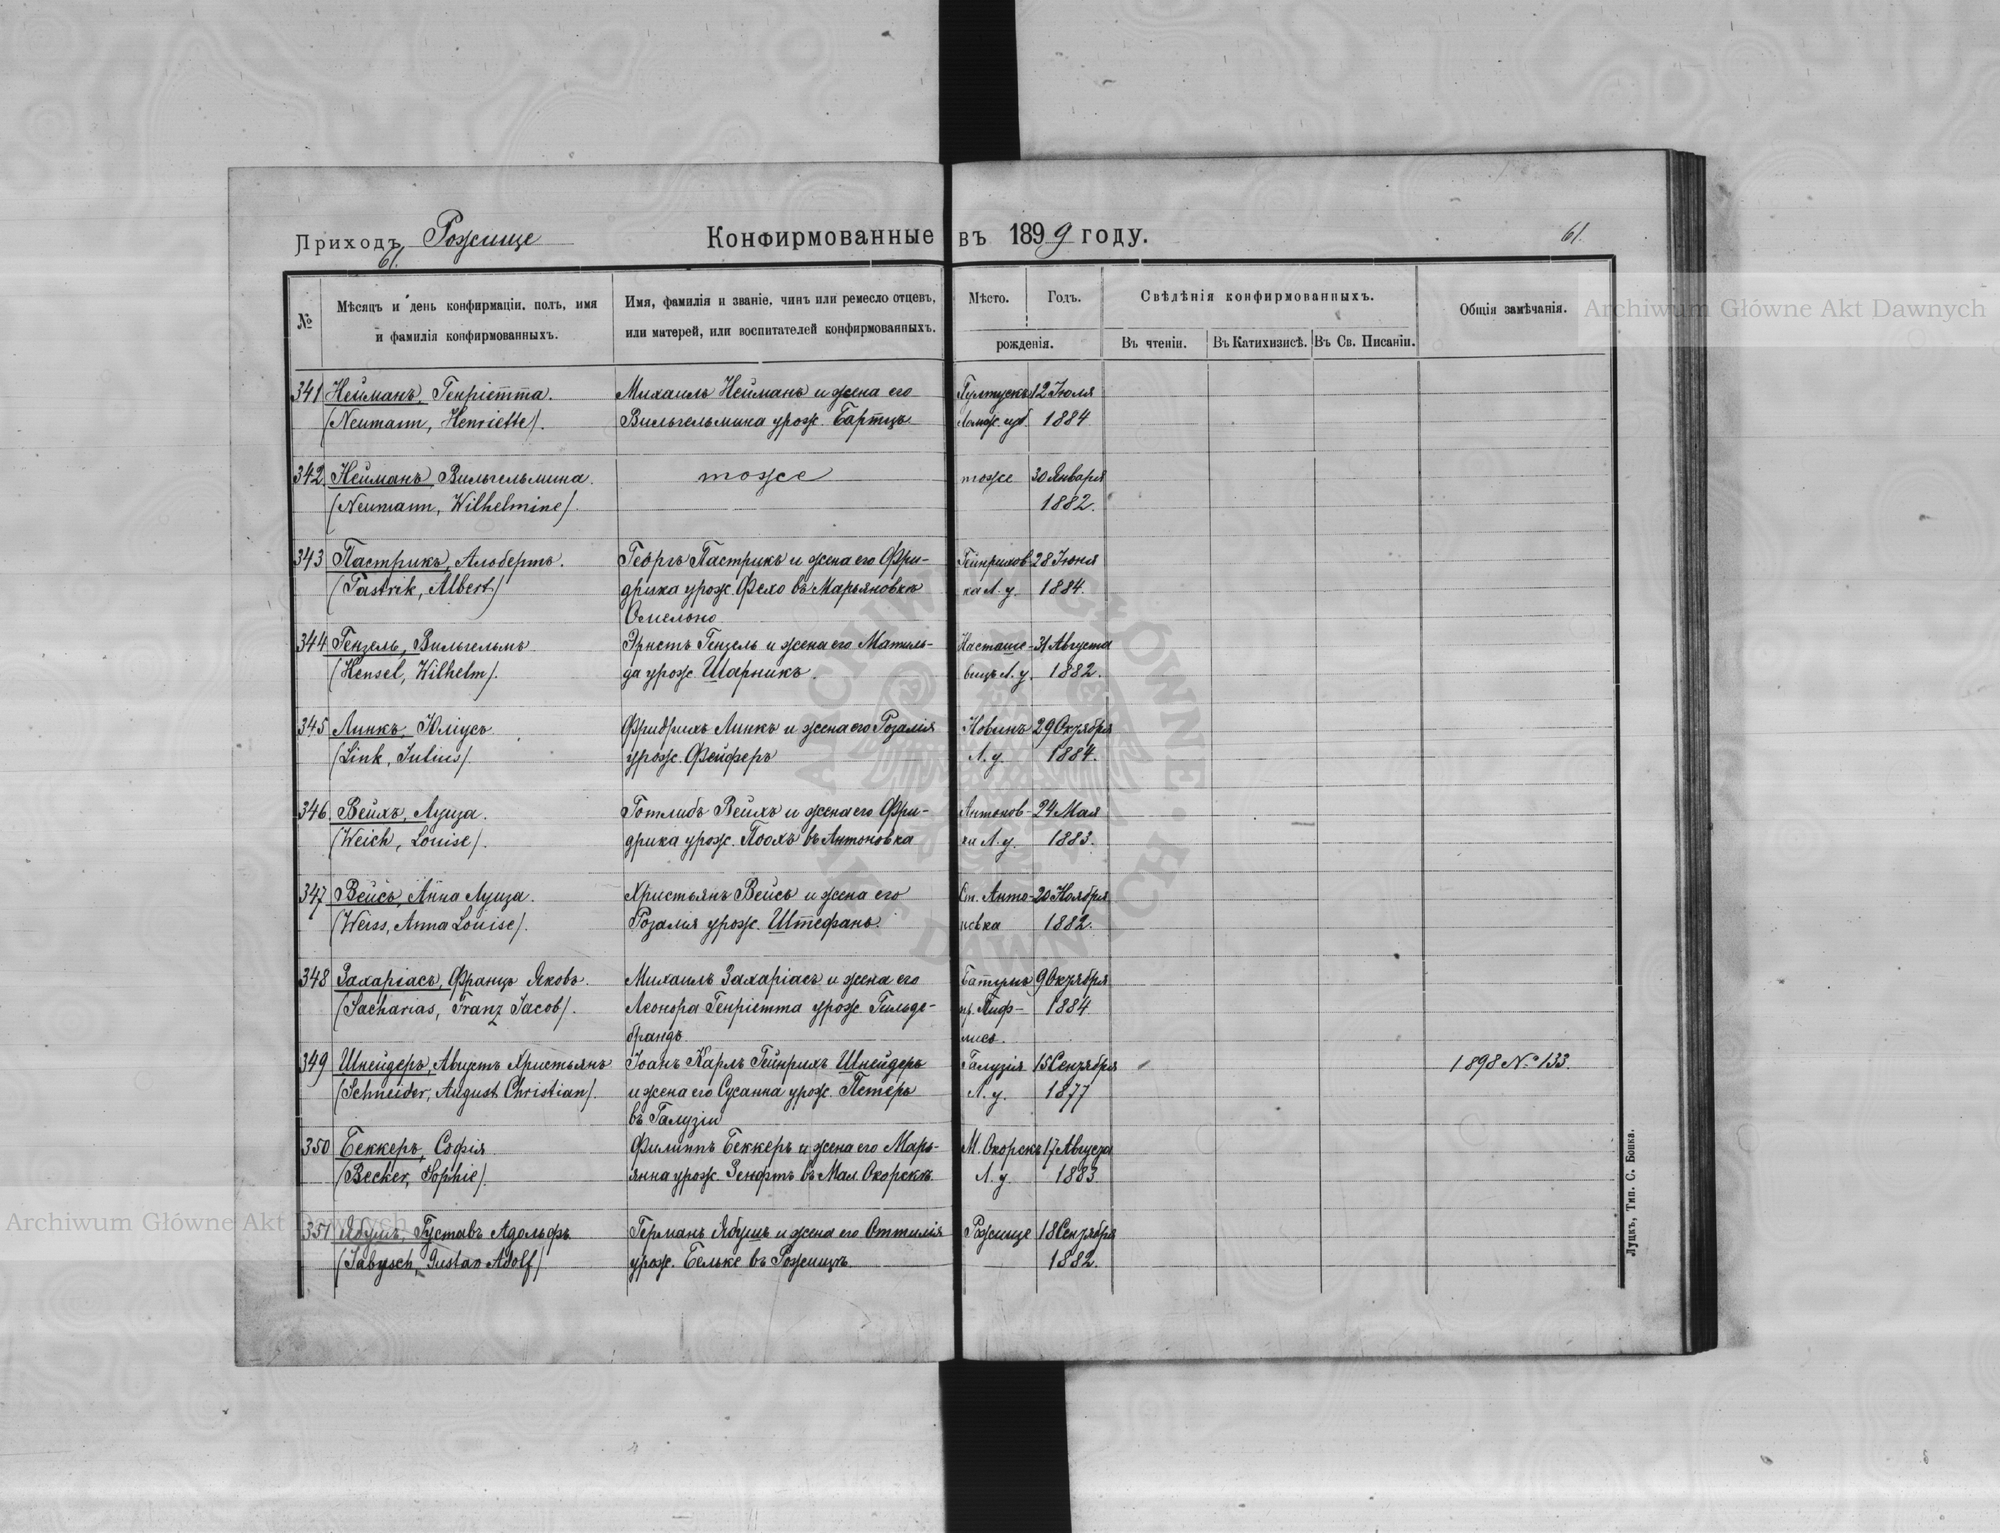 Приходъ Рожище Конфирмованные въ 1899 году.
61.
61.
№
Мѣсяцъ и день конфирмаціи, полъ, имя
и фамилія конфирмованныхъ.
Имя, фамилія и званіе, чинъ или ремесло отцевъ,
или матерей, или воспитателей конфирмованныхъ.
Мѣсто. Годъ.
рожденія.
Свѣдѣнія конфирмованныхъ.
Въ чтеніи. Въ Катихизисѣ. Въ Св. Писаніи.
Общія замѣчанія.
341 Нейманъ, Генріетта. Михаилъ Нейманъ и жена его Пултускъ 12 Іюля
(Neumann, Henriette). Вильгельмина урож. Бартцъ Ломж. губ. 1884
342 Нейманъ Вильгельмина. тоже тоже 30 Января
(Neumann, Wilhelmine). 1882.
343 Пастрикъ, Альбертъ. Георгъ Пастрикъ и жена его Фри- Гейнрихов- 28 Іюня
(Pastrik, Albert) дрика урож. Фехо въ Марьяновкѣ ка Л. у. 1884.
Омельно
344 Гензель, Вильгельмъ Эрнстъ Гензель и жена его Матиль- 31 Августа
(Hensel, Wilhelm). да урож. Шарникъ. Л. у. 1882.
345 Линкъ, Юліусъ Фридрихъ Линкъ и жена его Розалія 29 Октября
(Link, Julius) урож. Фейферъ Л. у. 1884.
346 Вейхъ, Луиза. Готлибъ Вейхъ и жена его Фри- Антонов- 24 Мая
(Weich, Louise). дрика урож. Поохъ въ Антоновка ка Л. у. 1883.
347 Вейсъ, Анна Луиза. Христьянъ Вейсъ и жена его Ст. Анто- 20 Ноября
(Weiss, Anna Louise). Розалія урож. Штефанъ. новка 1882.
348 Захаріасъ, Францъ Яковъ. Михаилъ Захаріасъ и жена его Батумъ 9 Октября
(Sacharias, Franz Jacob). Леонора Генріетта урож. Гильде- Тиф- 1884
брандъ лисъ.
349 Шнейдеръ, Августъ Христьянъ Іоанъ Карлъ Гейнрихъ Шнейдеръ Галузія 15 Сентября 1898 № 133.
(Schneider, August Christian). и жена его Сусанна урож. Петеръ Л. у. 1877
въ Галузіи
350 Беккеръ, Софія Филиппъ Беккеръ и жена его Марь- М. Окорскъ 17 Августа
(Becker, Sophie). янна урож. Зенфтъ въ Мал. Окорскѣ Л. у. 1883
351 Ябушъ, Густавъ Адольфъ Германъ Ябушъ и жена его Оттилія Рожище 18 Сентября
(Jabusch, Gustav Adolf) урож. Бельке въ Рожищѣ 1882.
Луцкъ, Тип. С. Бонка.
Archiwum Główne Akt Dawnych
Archiwum Główne Akt Dawnych
ARCHIWUM GŁÓWNE AKT DAWNYCH